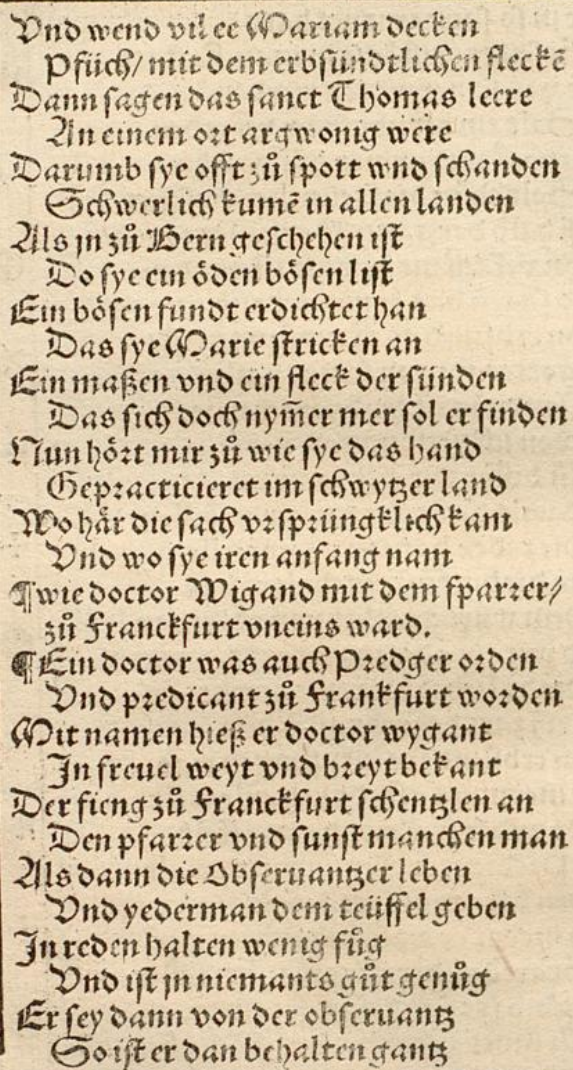 Vnd wend vil ee Mariam decken
Pfüch/ mit dem erbsündtlichen fleckē
Dann sagen das sanct Thomas leere
An einem ort argwonig were
Darumb sye offt zů spott wnd schanden
Schwerlich kumē in allen landen
Als jn zů Bern geschehen ist
Do sye ein öden bösen list
Ein bösen fundt erdichtet han
Das sye Marie stricken an
Ein maßen vnd ein fleck der sünden
Das sich doch nym̄er mer sol er finden
Nun hört mir zů wie sye das hand
Gepracticieret im schwytzer land
Wo här die sach vrsprüngklich kam
Vnd wo sye iren anfang nam
¶wie doctor Wigand mit dem fparrer/
zů Franckfurt vneins ward.
¶Ein doctor was auch Predger orden
Vnd predicant zů Frankfurt worden
Mit namen hieß er doctor wygant
In freuel weyt vnd breyt bekant
Der fieng zů Franckfurt schentzlen an
Den pfarrer vnd sunst manchen man
Als dann die Obseruantzer leben
Vnd yederman dem teüffel geben
In reden halten wenig fůg
Vnd ist jn niemants gůt genůg
Er sey dann von der obseruantz
So ist er dan behalten gantz